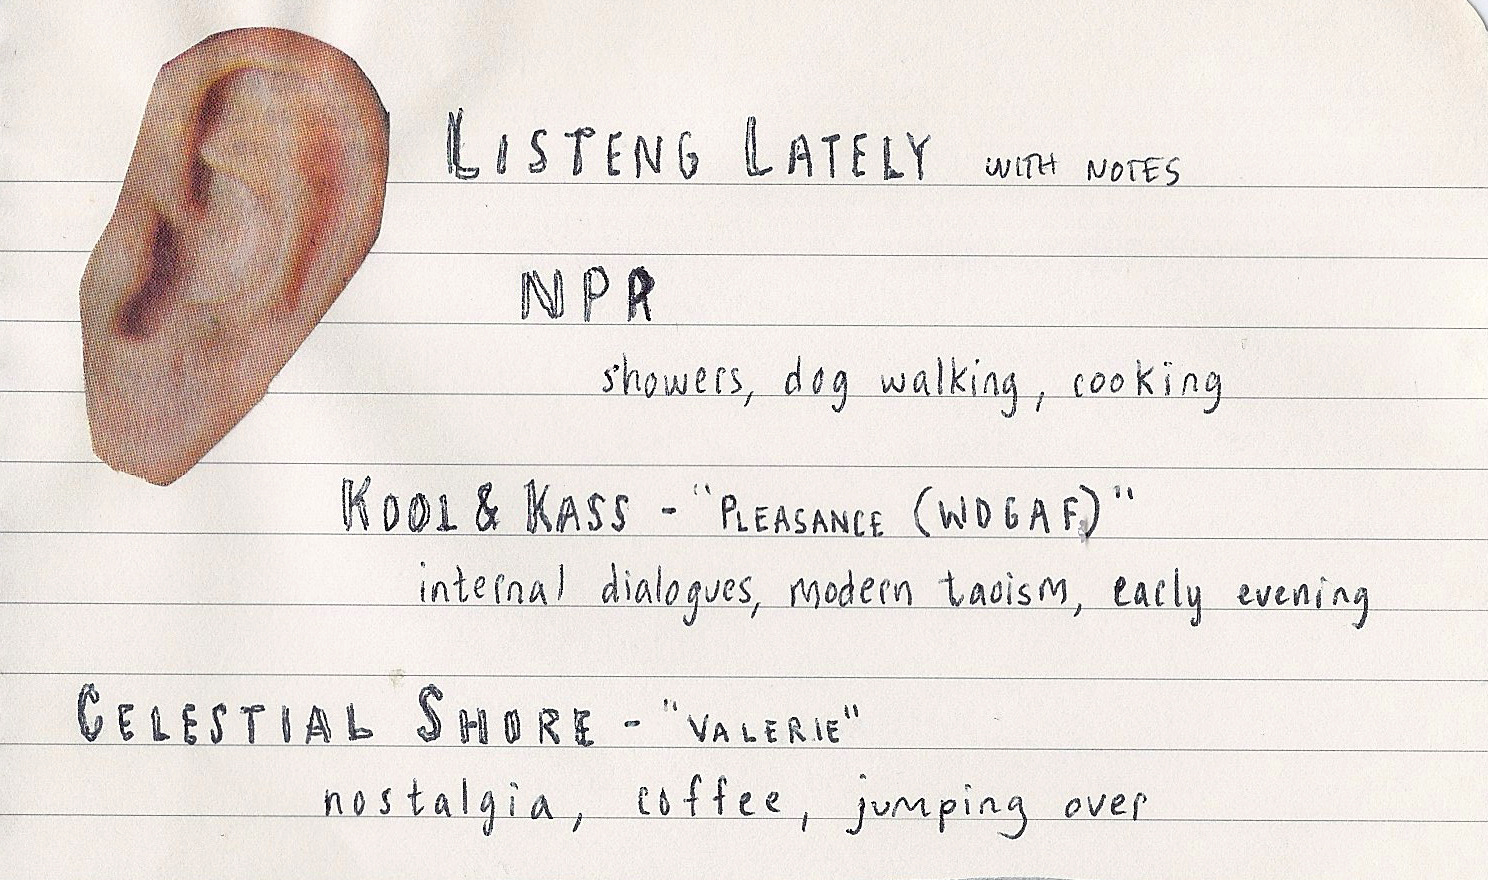 LISTENG LATELY WITH NOTES
NPR
showers, dog walking, cooking
KOOL & KASS - "PLEASANCE (WDGAF)"
internal dialogues, modern taoism, early evening
CELESTIAL SHORE - "VALERIE"
nostalgia, coffee, jumping over